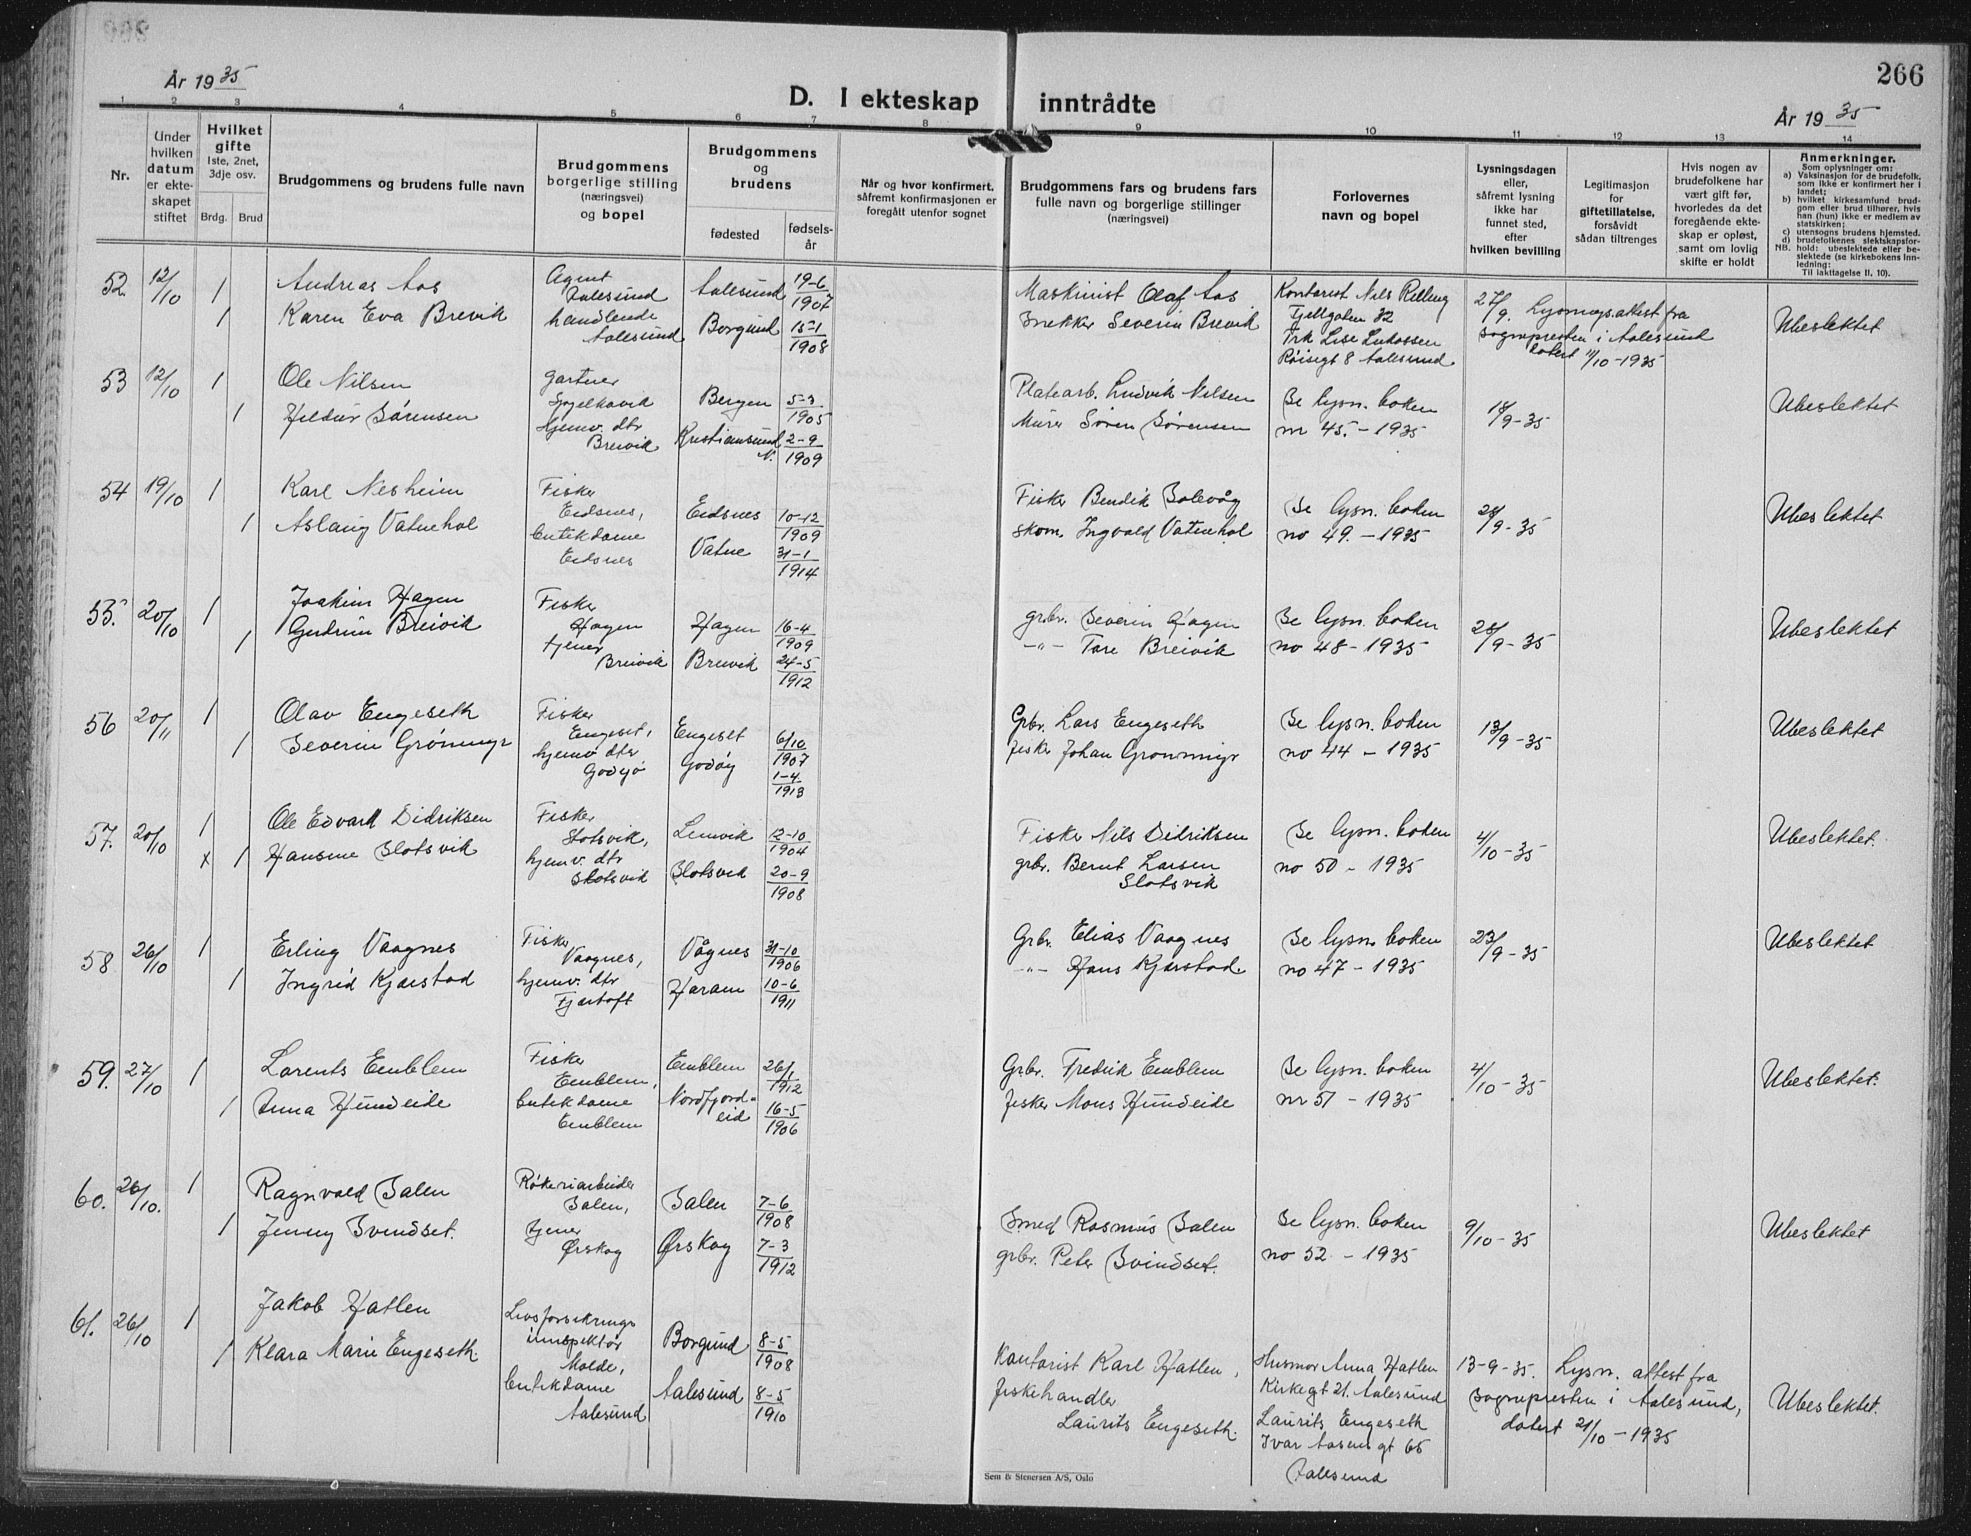 266
År 1935
D. I ekteskap inntrådte
År 1935
1 2 3 4 5 6 7 8 9 10 11 12 13 14
Nr.
Under hvilken datum er ekteskapet stiftet
Hvilket gifte 1ste, 2net, 3dje osv.
Brdg. Brud
Brudgommens og brudens fulle navn
Brudgommens borgerlige stilling (næringsvei) og bopel
Brudgommens og brudens
fødested
fødselsår
Når og hvor konfirmert, såfremt konfirmasjonen er foregått utenfor sognet
Brudgommens fars og brudens fars fulle navn og borgerlige stillinger (næringsvei)
Forlovernes navn og bopel
Lysningsdagen eller, såfremt lysning ikke har funnet sted, efter hvilken bevilling
Legitimasjon for giftetillatelse, forsåvidt sådan tiltrenges
Hvis nogen av brudefolkene har vært gift før, hvorledes da det foregående ekteskap er opløst, samt om lovlig skifte er holdt
Anmerkninger.
Som oplysninger om:
a) Vaksinasjon for de brudefolk, som ikke er konfirmert her i landet;
b) hvilket kirkesamfund brudgom eller brud tilhører, hvis han (hun) ikke er medlem av statskirken;
c) utensogns brudens hjemsted.
d) brudefolkenes slektskapsforhold: ubeslektede eller beslektede (se kirkebokens Innledning:
NB. Til iakttagelse II, 10).
52 12/10 1 Andreas Aas Agent Aalesund Aalesund 19-6 1907 Maskinist Olaf Aas Kontorist Nils Relling Fjellgaten 32 27/9. Lysningsattest fra
1 Karen Eva Brevik handlende Aalesund Borgund 15-1 1908 Snekker Severin Brevik Frk Lise Lukassen Røisegt 8 Aalesund sognepresten i Aalesund datert 11/10-1935 Ubeslektet
53 12/10 1 Ole Nilsen Gartner Spjelkavik Bergen 5-3 1905 Platearb. Ludvik Nilsen Se lysn. boken 18/9-35 Ubeslektet
1 Hildur Sørensen hjemv. dtr Breivik Kristiansund N. 2-9 1909 Murer Søren Sørensen nr 45.-1935
54 19/10 1 Karl Nesheim Fisker Eidsnes, Eidsnes 10-12 1909 Fisker Bendik Solevåg Se lysn. boken 28/9-35 Ubeslektet
1 Aslaug Vatnehol butikdame Eidsnes Vatne 31-1 1914 skom. Ingvald Vatnehol no 49.-1935
55. 20/10 1 Joakim Hagen Fisker Hagen Hagen 16-4 1909 grbr. Severin Hagen Se lysn. boken 28/9-35 Ubeslektet
1 Gudrun Breivik tjener Breivik Breivik 24-5 1912 -"- Tore Breivik no 48-1935
56 20/11 1 Olav Engeseth Fisker Engeset, Engeset 6/10 1907 Grbr. Lars Engeseth Se lysn. boken 13/9-35 Ubeslektet
1 Severin Grønmyr hjemv dtr Godøy Godøy 1-4 1913 fisker Johan Grønmyr no 44-1935
57. 20/10 1 Ole Edvard Didriksen Fisker Slotsvik, Lenvik 12-10 1904 Fisker Nils Didriksen Se lysn. boken 4/10-35 Ubeslektet.
x 1 Hansine Slotsvik hjemv. dtr Slotsvik Slotsvik 20-9 1908 grbr. Bernt Larsen Slotsvik no 50-1935
58 26/10 1 Erling Vaagnes Fisker Vaagnes, Vågnes 31-10 1906 Grbr. Elias Vaagnes Se lysn. boken 23/9-35 Ubeslektet
1 Ingrid Kjærstad hjemv. dtr Fjærtoft Haram 10-6 1911 -"- Hans Kjærstad. no 47-1935
59. 27/10 1 Lorents Emblem Fisker Emblem, Emblem 26/1 1912 Grbr. Fredrik Emblem Se lysn. boken 4/10-35 Ubeslektet.
1 Anna Hundeide butikdame Emblem Nordfjordeid 16-5 1906 fisker Mons Hundeide nr 51-1935
60. 26/10. 1 Ragnvald Balen Røkeriarbeider Balen, Balen 7-6 1908 Smed Rasmus Balen Se lysn. boken 9/10-35 Ubeslektet
1 Jenny Svindset. tjener Ørskog Ørskog 7-3 1912 grbr. Peter Svindset. no 52-1935
61. 26/10 1 Jakob Hatlen Livsforsikringsinspektør Molde, Borgund 8-5 1908 Kontorist Karl Hatlen, Husmor Anna Hatlen Kirkegt 21. Aalesund 13-9-35. Lysn. attest fra
1 Klara Marie Engeseth. butikdame Aalesund Aalesund 8-5 1910 Fiskehandler Laurits Engeseth. Laurits Engeseth Ivar Aasengt 65 Aalesund sognepresten i Aalesund, datert 21/10-1935 Ubeslektet.
Sem & Stenersen A/S, Oslo